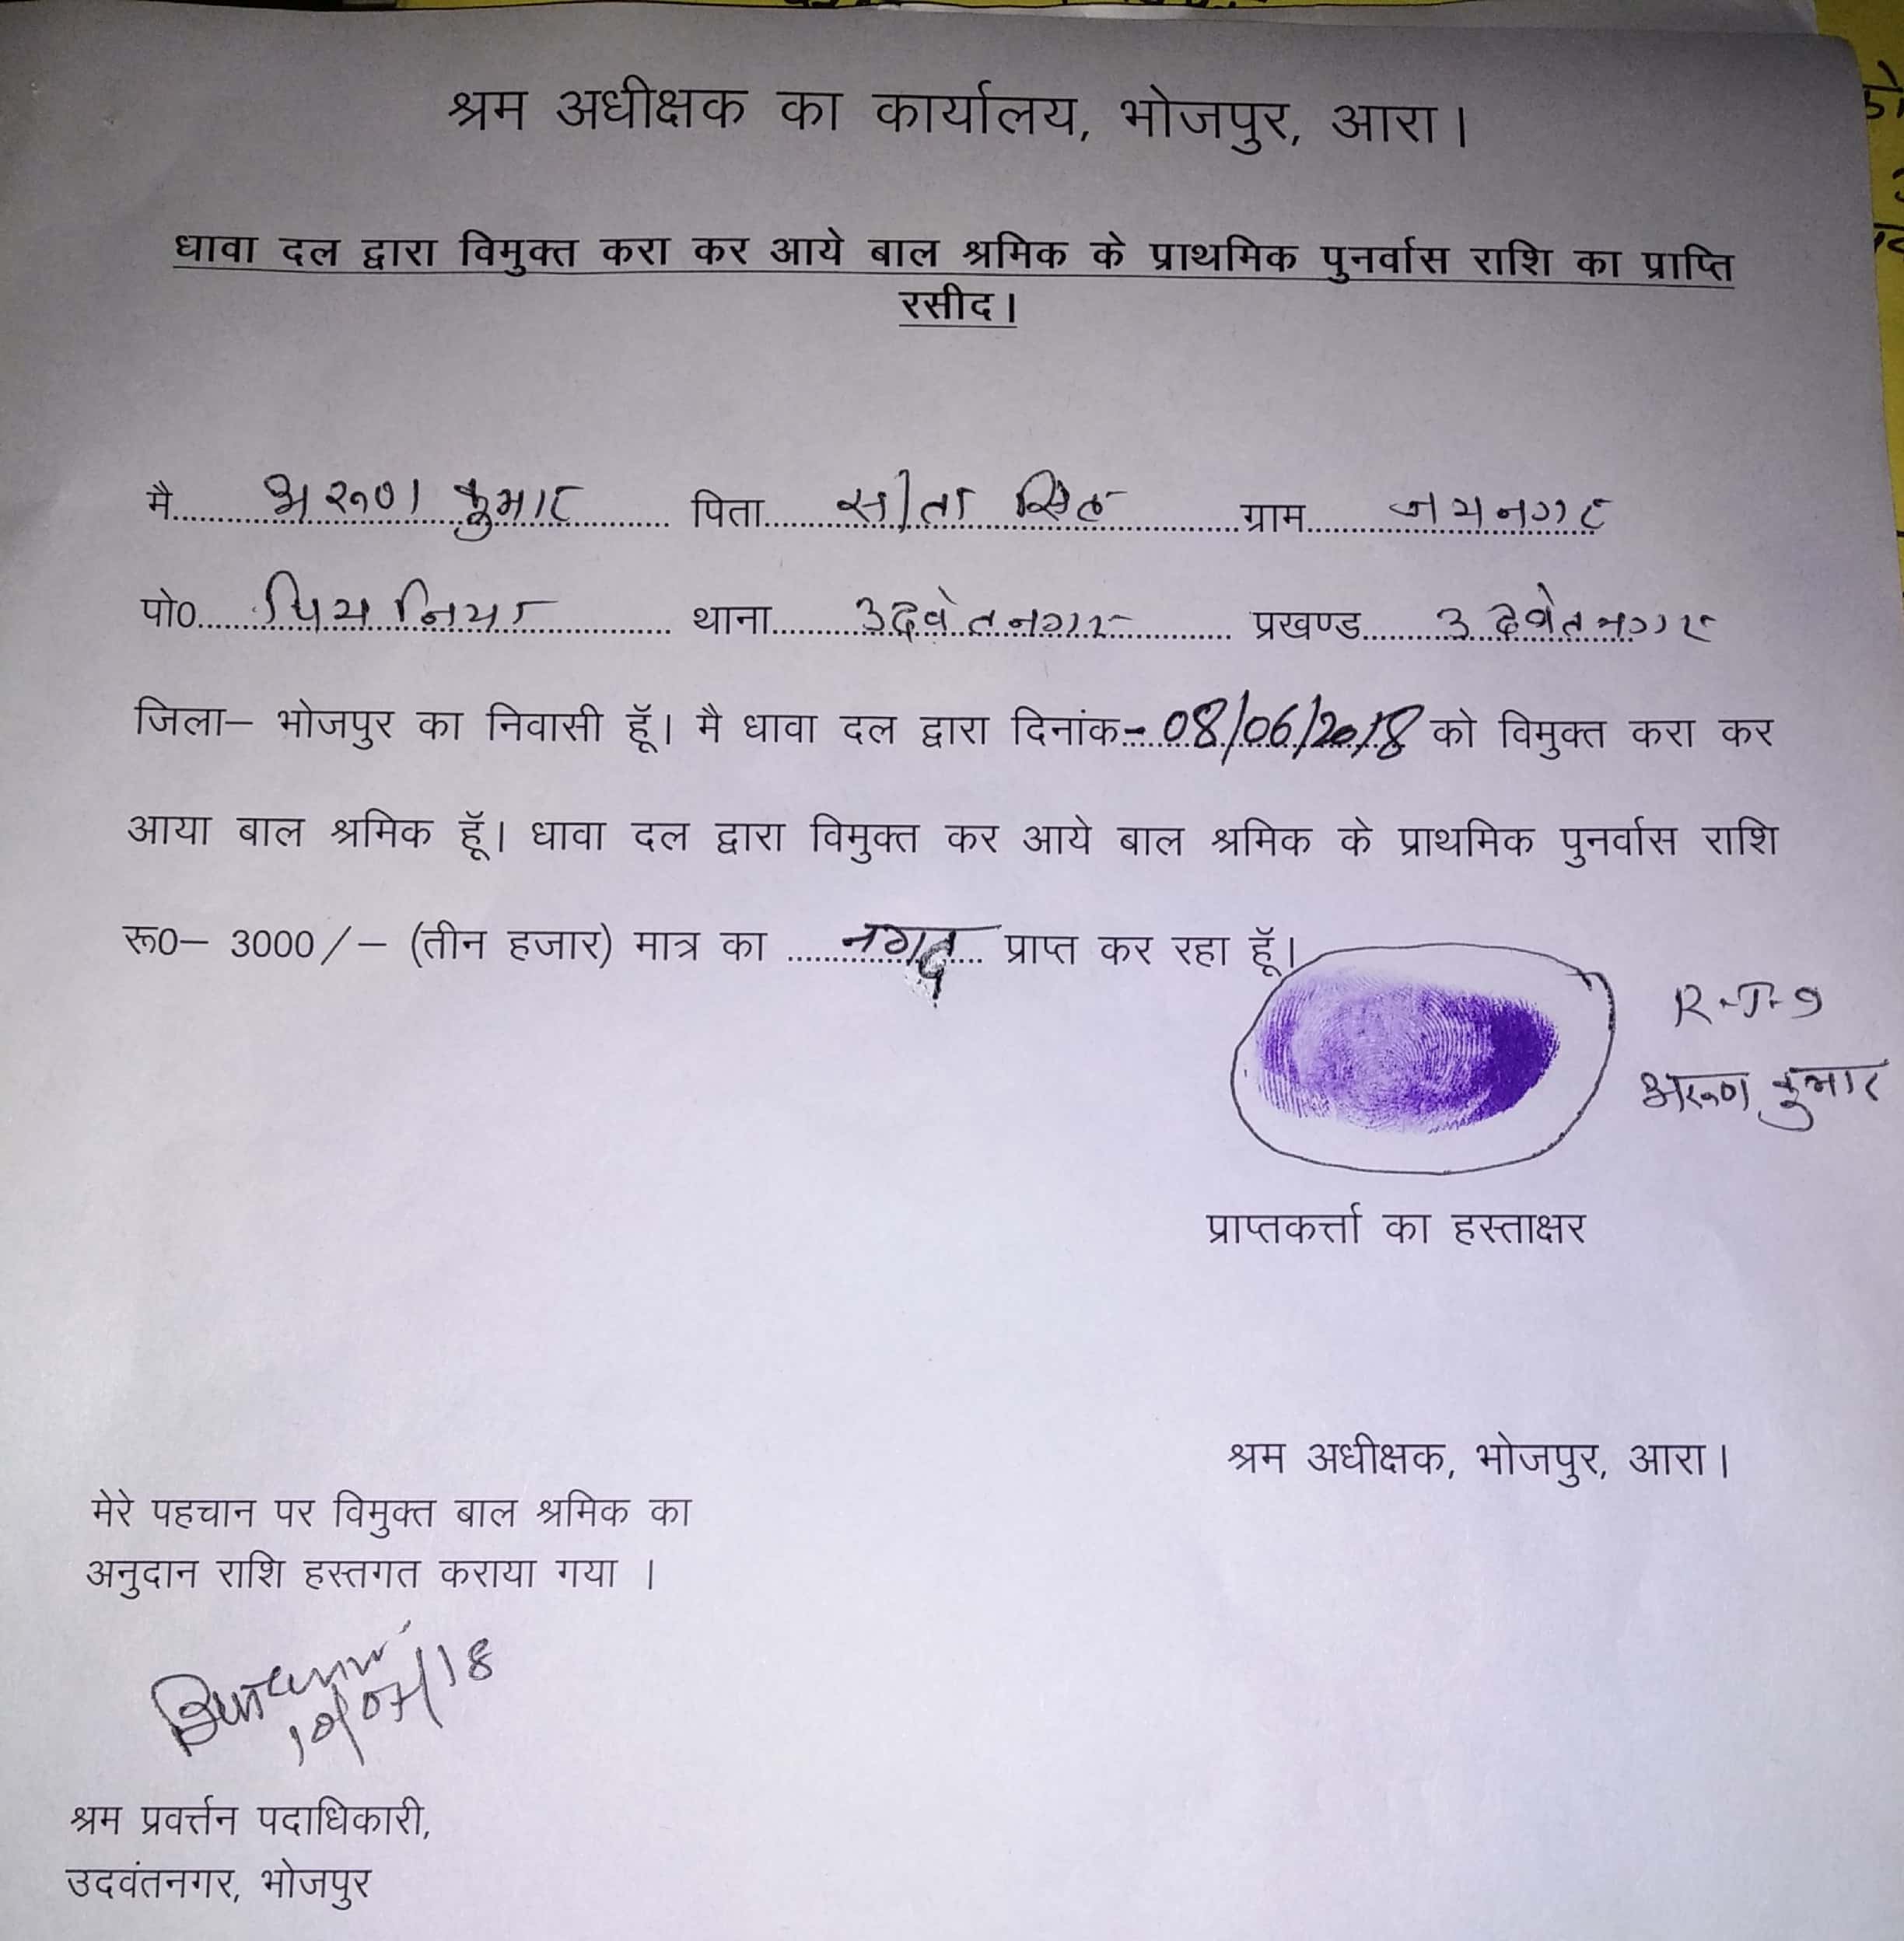 श्रम अधीक्षक का कार्यालय, भोजपुर, आरा।
धावा दल द्वारा विमुक्त करा कर आये बाल श्रमिक के प्राथमिक पुनर्वास राशि का प्राप्ति
रसीद।
मै.......अरूण कुमार....... पिता.......सीता सिंह.......ग्राम.......जयनगर
पो0....... थाना.......उदवंतनगर....... प्रखण्ड.......उदवंतनगर
जिला– भोजपुर का निवासी हूॅ। मै धावा दल द्वारा दिनांक-08/06/2018 को विमुक्त करा कर
आया बाल श्रमिक हूॅ। धावा दल द्वारा विमुक्त कर आये बाल श्रमिक के प्राथमिक पुनर्वास राशि
रू0– 3000/– (तीन हजार) मात्र का .......नगद....... प्राप्त कर रहा हूॅ।
अरूण कुमार
प्राप्तकर्त्ता का हस्ताक्षर
श्रम अधीक्षक, भोजपुर, आरा।
मेरे पहचान पर विमुक्त बाल श्रमिक का
अनुदान राशि हस्तगत कराया गया ।
10/07/18
श्रम प्रवर्त्तन पदाधिकारी,
उदवंतनगर, भोजपुर